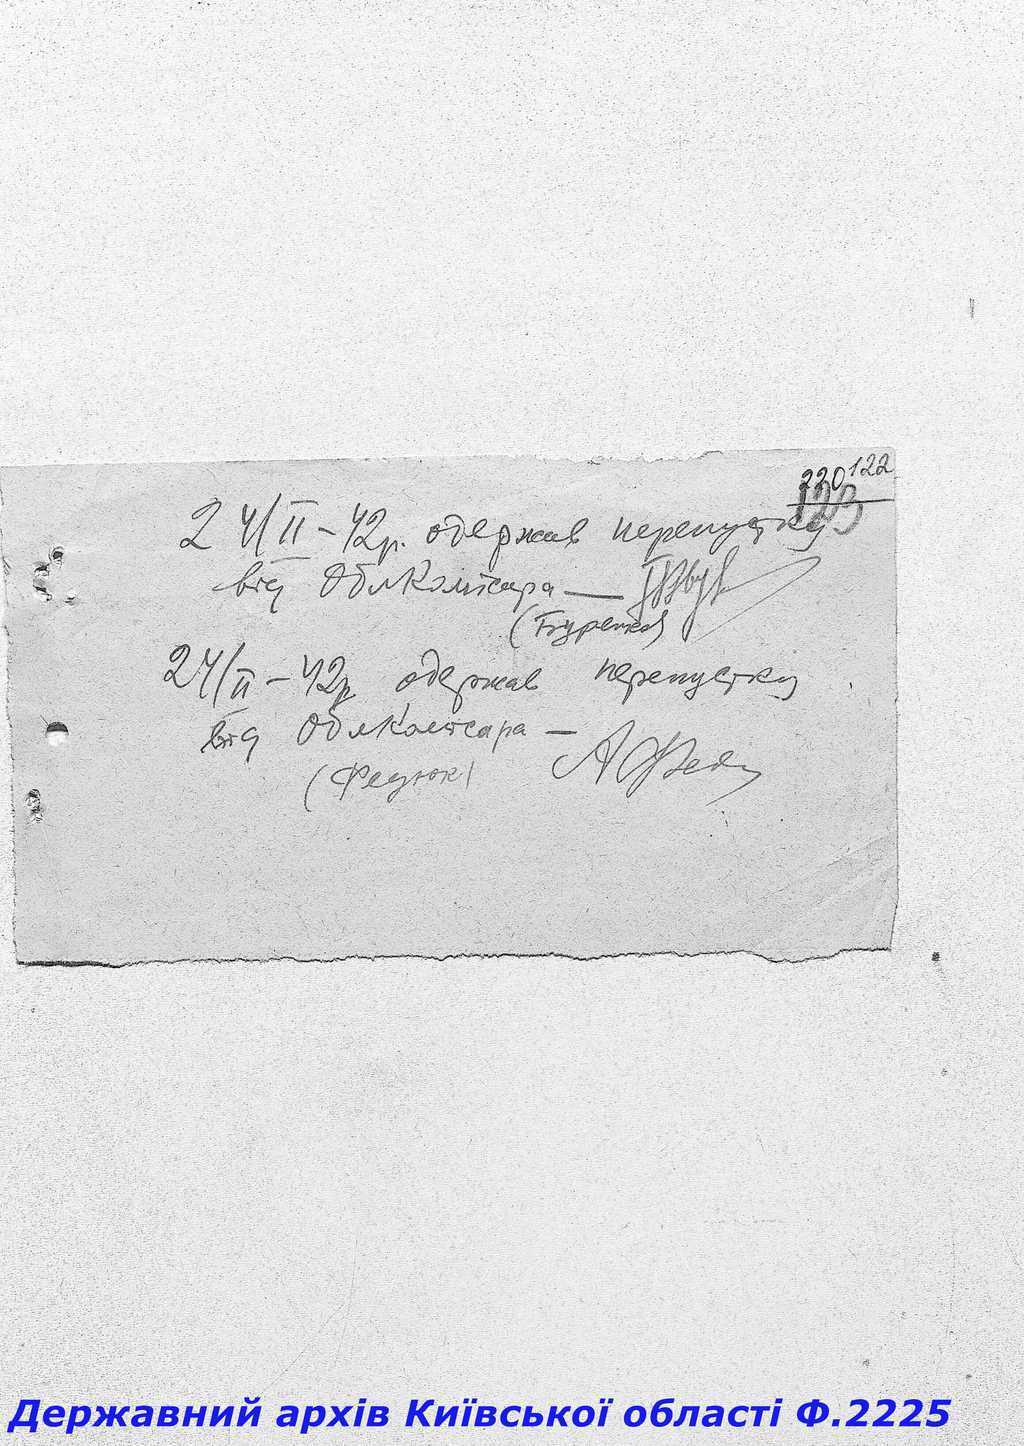 220 122
123
24/II-42р. одержав перепустку
від Облкомісара —
(Буренко)
24/II-42р одержав перепустку
від Облкомісара —
(Федюк)
Державний архів Київської області Ф.2225